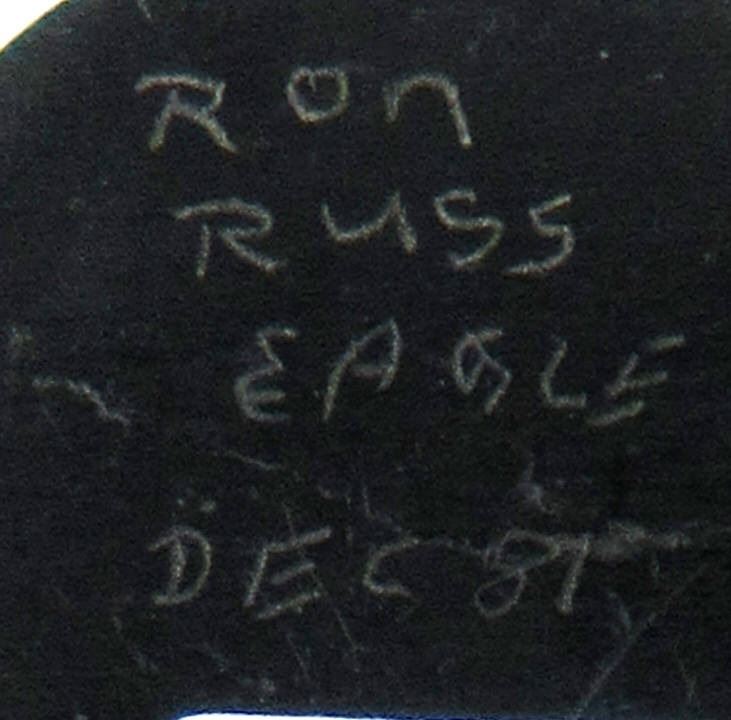 RON
RUSS
EAGLE
DEC 87